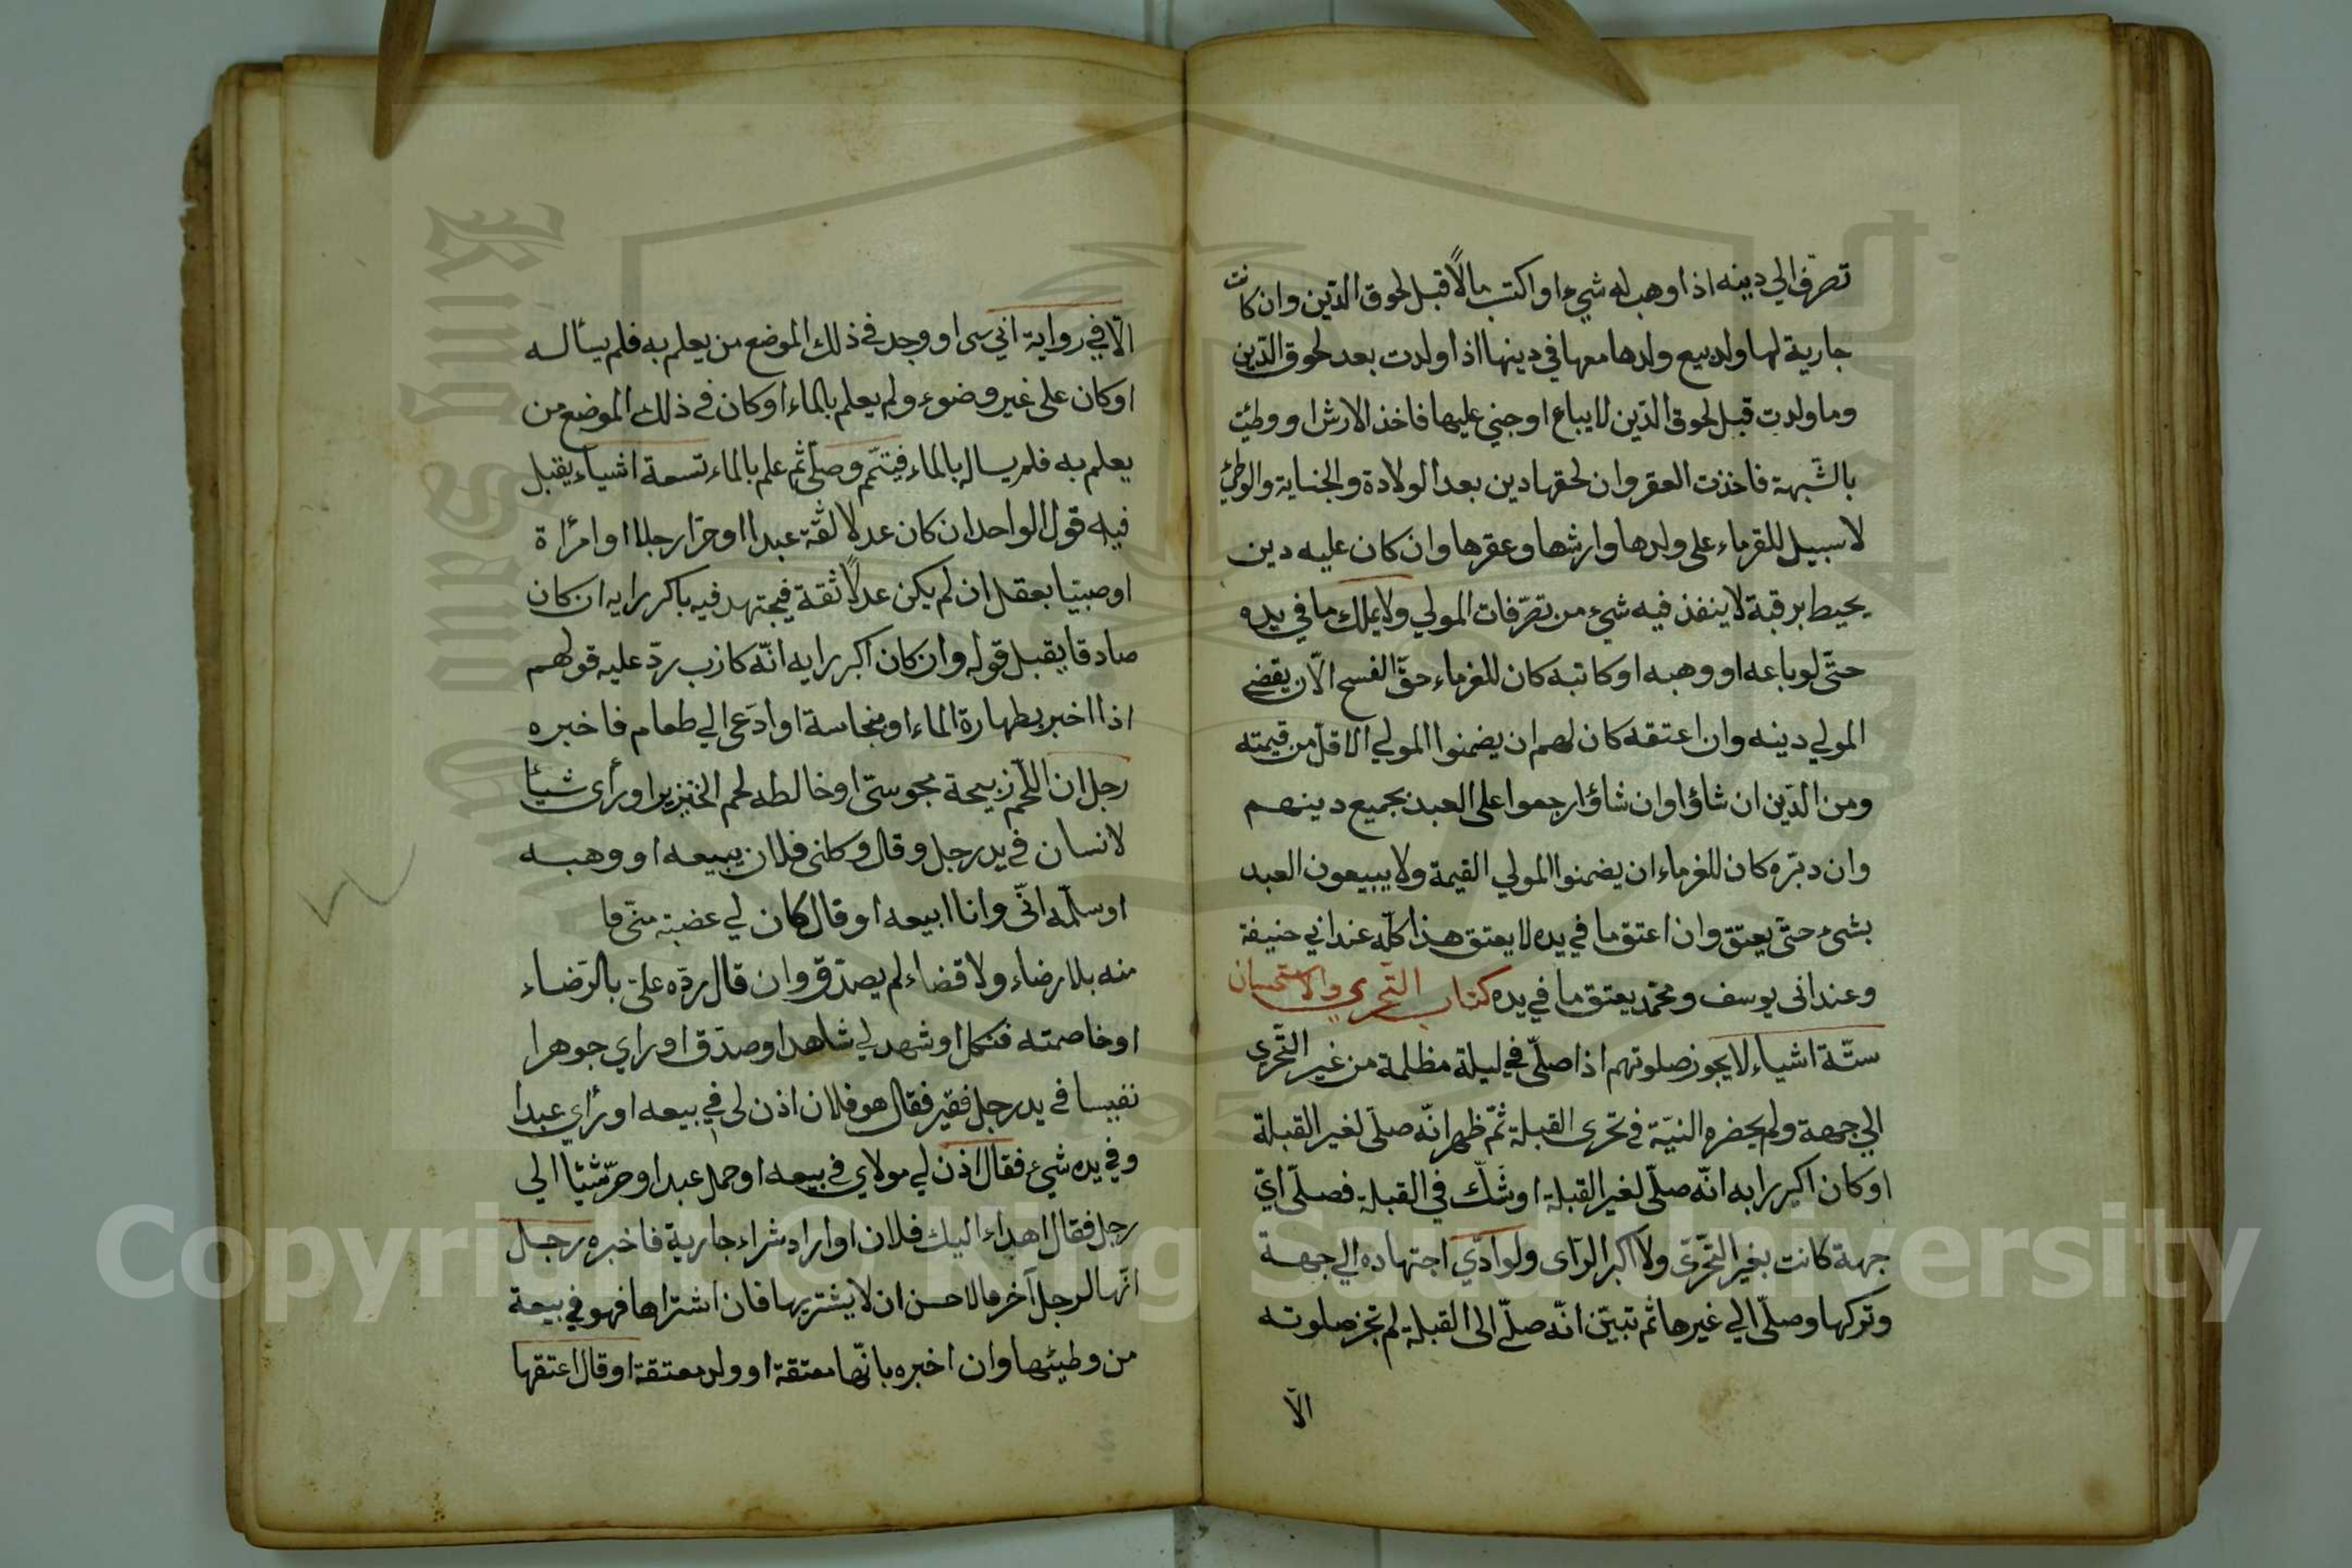 تصرف الي دينه اذا وهب له شيء او اكتب مالاً قبل لحوق الدّين وان كانت
جارية لها ولد بيع ولدها معها في دينها اذا ولدت بعد لحوق الدّين
وما ولدت قبل لحوق الدّين لا يباع او جني عليها فاخذ الارش او وطئت
بالشّبهة فاخذت العقر وان لحقها دين بعد الولادة والجناية والوطئ
لا سبيل للقرماء على ولدها وارشها وعقرها وان كان عليه دين
يحيط برقبة لا ينفذ فيه شيء من تصرّفات المولي ولا يملك ما في يده
حتّى لو باعه او وهبه او كاتبه كان للغرماء حقّ الفسح الّا ان يقضي
المولي دينه وان اعتقه كان لهم ان يضمنوا المولي الاقلّ من قيمته
ومن الدّين ان شاؤا وان شاؤا رجعوا على العبد بجميع دينهم
وان دبّره كان للغرماء ان يضمنوا المولي القيمة ولا يبيعون العبد
بشئ حتّى يعتق وان اعتق ما في يده لا يعتق هذا كلّه عند ابي حنيفة
وعند ابى يوسف ومحمّد يعتق ما في يده كتاب التّحري والاستحسان
ستّة اشياء لا يجوز صلوتهم اذا صلّى في ليلة مظلمة من غير التّحرى
الي جهة ولم يحضره النيّة في تحرى القبلة ثمّ ظهر انّه صلّى لغير القبلة
او كان اكبر رايه انّه صلّى لغير القبلة او شكّ في القبلة فصلّى ايّ
جهة كانت بغير التّحرّى ولا اكبر الرّاى ولو ادّي اجتهاده الي جهة
وتركها وصلّى الي غيرها ثم تبيّن انّه صلّى الى القبلة لم تجز صلوته
الّا
الّا في رواية ابي سى او وجد في ذلك الموضع من يعلم به فلم يسأله
او كان على غير وضوء ولم يعلم بالماء او كان في ذلك الموضع من
يعلم به فلم يساله بالماء فيتمّم وصلّى ثم علم بالماء تسعة اشياء يقبل
فيه قول الواحد ان كان عدلا ثقة عبدا او حرّا رجلا او امرأة
او صبيّا يعقل ان لم يكن عدلاً ثقة فيجتهد فيه باكبر رايه ان كان
صادقا يقبل قوله وان كان اكبر رايه انّه كاذب ردّ عليه قولهم
اذا اخبر بطهارة الماء او بنجاسة او ادعى الي طعام فاخبره
رجل ان اللّحم ذبيحة مجوسيّ او خالطه لحم الخنزير او رأى شيئا
لانسان في يد رجل وقال وكلنى فلان ببيعه او وهبه
او سلّمه انّي وانا ابيعه او قال كان لي غصبة منّي
منه بلا رضاء ولا قضاء لم يصدّق وان قال ردّه علىّ بالرّضاء
او خاصمته فنكل او شهد لي شاهد او صدّق او راي جوهرا
نفيسا في يد رجل فقير فقال هو فلان اذن لى في بيعه او رأي عبدا
وفي يده شيء فقال اذن لي مولاي في بيعه او حمل عبد او حرّ شيئا الي
رجل فقال اهداء اليك فلان او اراد شراء جارية فاخبره رجل
انّها لرجل آخر فالاحسن ان لا يشتريها فان اشتراها فهو في بيعة
من وطيئها وان اخبره بانّها معتقة او ولد معتقة او قال اعتقها
King Saud University
1957
Copyright © King Saud University